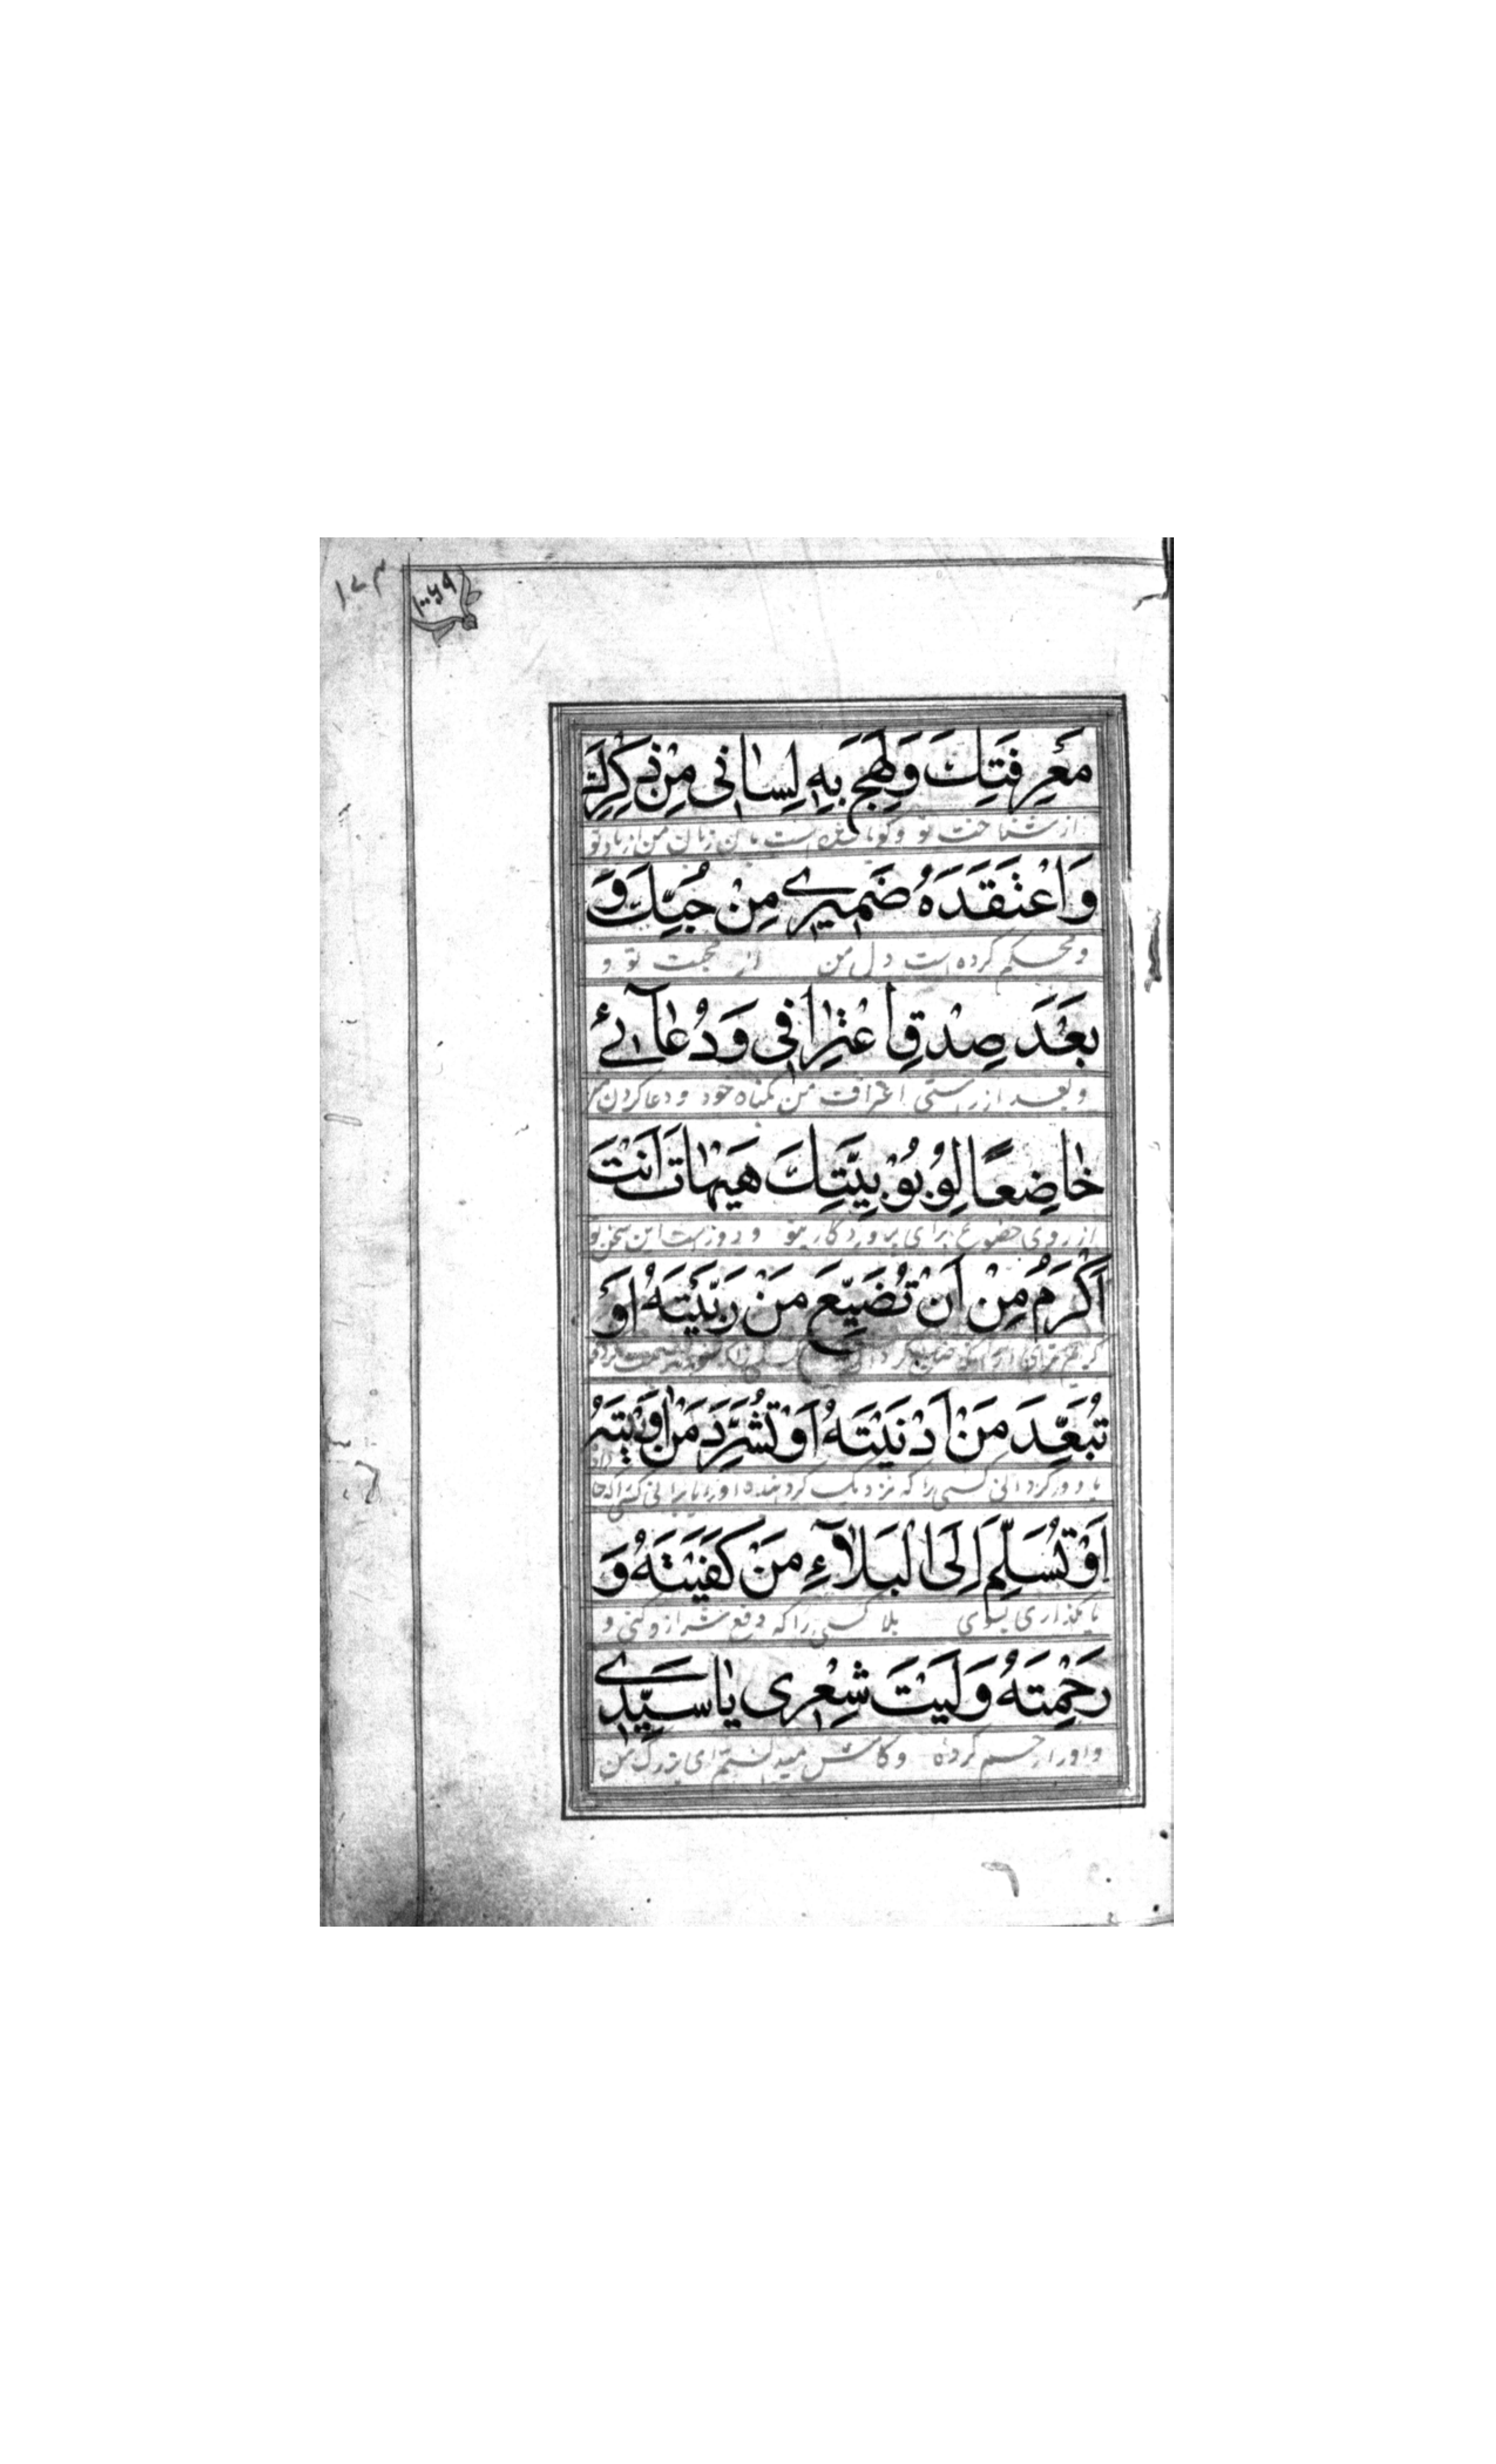 ١٧٣
مَعْرِفَتِكَ وَلَهِجَ بِهِ لِسٰانی مِنْ ذِكْرِكَ
از شناخت تو و گویا شده است بآن زبان من از یاد تو
وَاعْتَقَدَهُ ضَمیرے مِنْ حُبِّكَ وَ
و محکم کرده است دل من از محبت تو و
بَعْدَ صِدْقِ اعْتِرٰافی وَدُعٰآئے
و بعد از راستی اعتراف من بگناه خود و دعا کردن من
خٰاضِعًا لِرُبُوْبِیَّتِكَ هَیْهٰاتَ اَنْتَ
از روی خضوع برای پروردگاریتو و دورست این سخن تو
اَكْرَمُ مِنْ اَنْ تُضَیِّعَ مَنْ رَبَّیْتَهُ اَوْ
کریم تری از آنکه ضایع کردانی
تُبَعِّدَ مَنْ اَدْنَیْتَهُ اَوْ تُشَرِّدَ مَنْ اٰوَیْتَهُ
یا دور کردانی کسی را که نزدیک کرده او را یا برانی کسی را که جا داده
اَوْ تُسَلِّمَ اِلَی الْبَلٰآءِ مَنْ كَفَیْتَهُ وَ
یا بگذاری بسوی بلا کسی را که دفع شر ازو کنی و
رَحِمْتَهُ وَلَیْتَ شِعْری یٰا سَیِّدے
و او را رحم کرده و کاش میدانستم ای بزرگ من